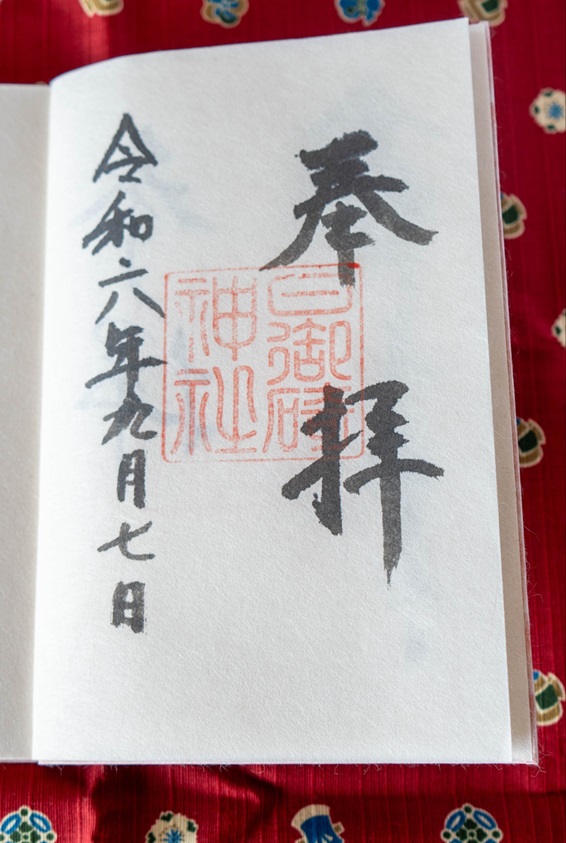 奉拝
日御碕神社
令和六年九月七日